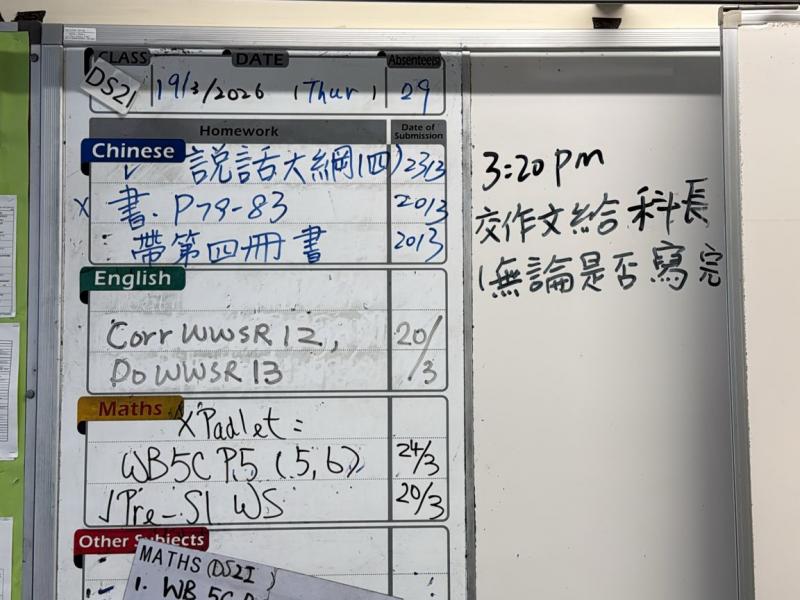 CLASS DATE Absentees
DS2I 19/3/2026 (Thur) 29
Homework Date of Submission
Chinese
說話大綱(四) 23/3
x 書. P79-83 20/3
帶第四冊書 20/3
English
Corr WWSR 12, 20/3
Do WWSR 13
Maths
x Padlet:
WB5C P.5 (5,6) 24/3
√Pre-S1 WS 20/3
Other Subjects
MATHS (DS2I)
1. WB 5C
3:20 pm
交作文給科長
(無論是否寫完